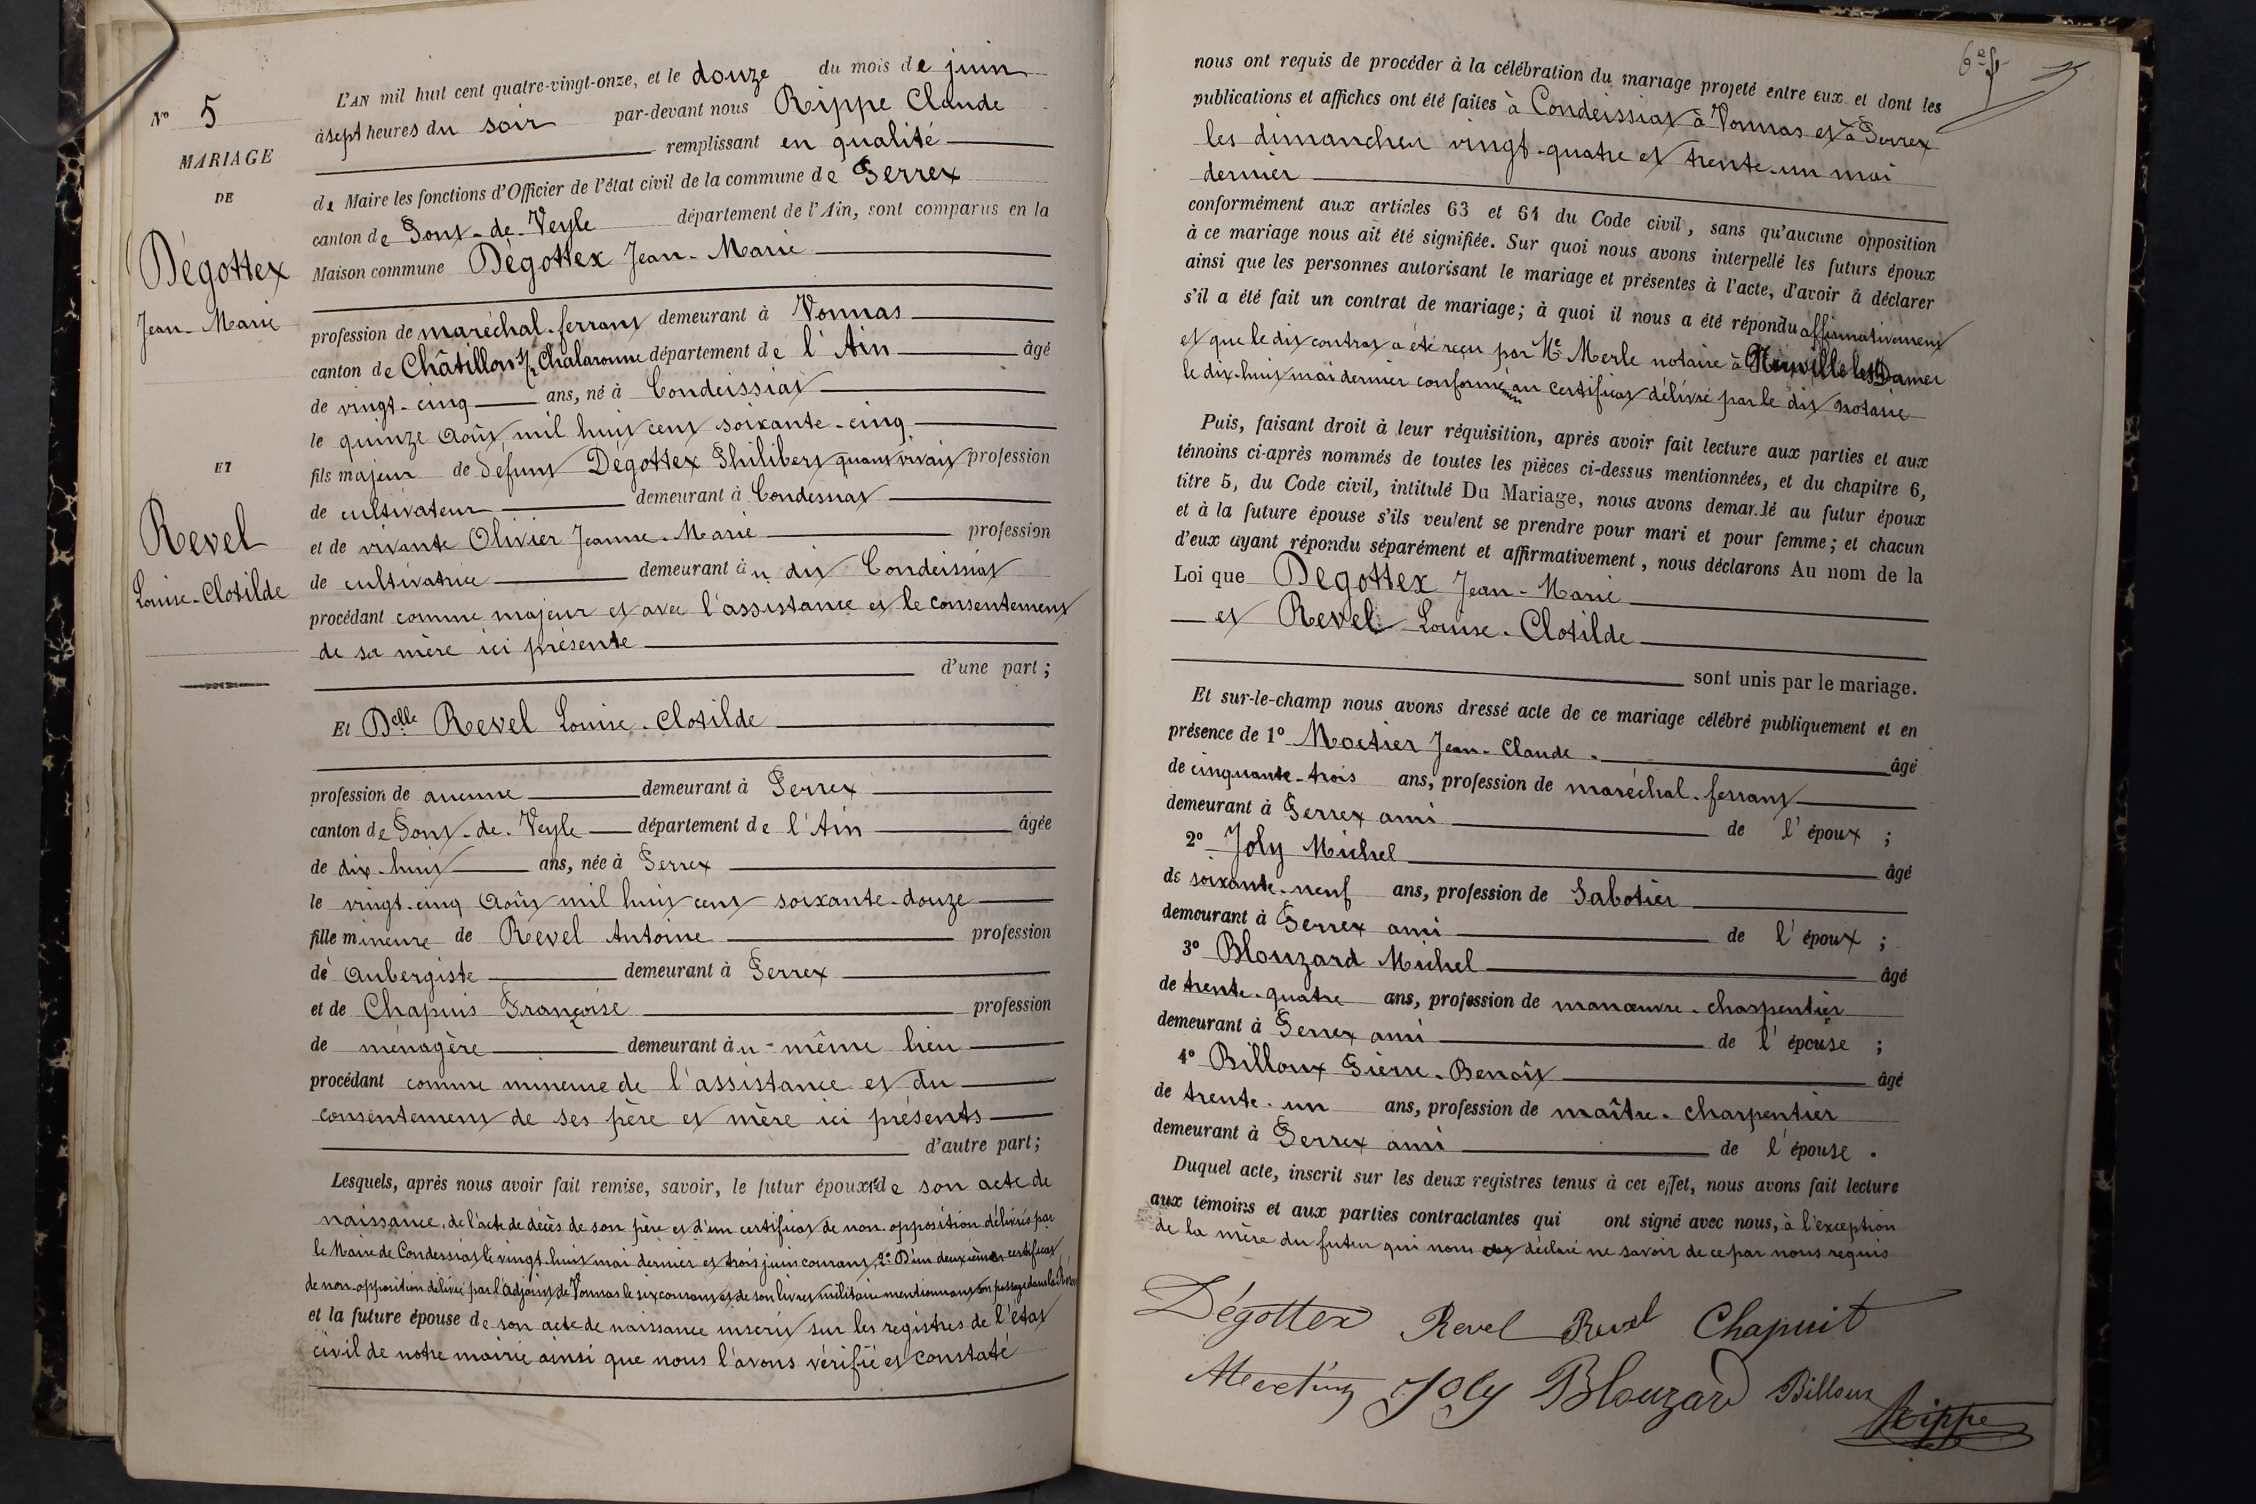 N° 5
MARIAGE
DE
Dégottex
Jean-Marie
ET
Revel
Louise-Clotilde
L'AN mil huit cent quatre-vingt-onze, et le douze du mois de juin
à sept heures du soir par-devant nous Rippe Claude
remplissant en qualité
de Maire les fonctions d'Officier de l'état civil de la commune de Perrex
canton de Pont-de-Veyle département de l'Ain, sont comparus en la
Maison commune Dégottex Jean-Marie
profession de maréchal-ferrant demeurant à Vonnas
canton de Châtillon s/ Chalaronne département de l'Ain âgé
de vingt-cinq ans, né à Condeissiat
le quinze Août mil huit cent soixante-cinq
fils majeur de défunt Dégottex Philibert quant vivait profession
de cultivateur demeurant à Condessiat
et de vivante Olivier Jeanne-Marie profession
de cultivatrice demeurant àu dit Condeissiat
procédant comme majeur et avec l'assistance et le consentement
de sa mère ici présente
d'une part;
Et Delle Revel Louise-Clotilde
profession de aucune demeurant à Perrex
canton de Pont-de-Veyle département de l'Ain âgée
de dix-huit ans, née à Perrex
le vingt-cinq Août mil huit cent soixante-douze
fille mineure de Revel Antoine profession
de Aubergiste demeurant à Perrex
et de Chapuis Françoise profession
de ménagère demeurant àu-même lieu
procédant comme mineure de l'assistance et du
consentement de ses père et mère ici présents
d'autre part;
Lesquels, après nous avoir fait remise, savoir, le futur époux 1° de son acte de
naissance, de l'acte de décès de son père et d'un certificat de non-opposition délivrés par
le Maire de Condessiat le vingt-huit mai dernier et trois juin courant, 2° D'un deuxième certificat
de non-opposition délivré par l'adjoint de Vonnas le six courant et de son livret militaire mentionnant son passage dans la
et la future épouse de son acte de naissance inscrit sur les registres de l'état
civil de notre mairie ainsi que nous l'avons vérifié et constaté
nous ont requis de procéder à la célébration du mariage projeté entre eux et dont les
publications et affiches ont été faites à Condeissiat à Vonnas et à Perrex
les dimanches vingt-quatre et trente-un mai
dernier
conformément aux articles 63 et 64 du Code civil, sans qu'aucune opposition
à ce mariage nous ait été signifiée. Sur quoi nous avons interpellé les futurs époux
ainsi que les personnes autorisant le mariage et présentes à l'acte, d'avoir à déclarer
s'il a été fait un contrat de mariage; à quoi il nous a été répondu affirmativement
et que le dit contrat a été reçu par Me Merle notaire à Neuville les Dames
le dix-huit mai dernier conformément au certificat délivré par le dit notaire
Puis, faisant droit à leur réquisition, après avoir fait lecture aux parties et aux
témoins ci-après nommés de toutes les pièces ci-dessus mentionnées, et du chapitre 6,
titre 5, du Code civil, intitulé Du Mariage, nous avons demandé au futur époux
et à la future épouse s'ils veulent se prendre pour mari et pour femme; et chacun
d'eux ayant répondu séparément et affirmativement, nous déclarons Au nom de la
Loi que Dégottex Jean-Marie
et Revel Louise-Clotilde
sont unis par le mariage.
Et sur-le-champ nous avons dressé acte de ce mariage célébré publiquement et en
présence de 1° Moctier Jean-Claude âgé
de cinquante-trois ans, profession de maréchal-ferrant
demeurant à Perrex ami de l'époux ;
2° Joly Michel âgé
de soixante-neuf ans, profession de Sabotier
demeurant à Perrex ami de l'époux ;
3° Blouzard Michel âgé
de trente-quatre ans, profession de manœuvre-charpentier
demeurant à Perrex ami de l'épouse ;
4° Billoux Pierre-Benoît âgé
de trente-un ans, profession de maître-charpentier
demeurant à Perrex ami de l'épouse .
Duquel acte, inscrit sur les deux registres tenus à cet effet, nous avons fait lecture
aux témoins et aux parties contractantes qui ont signé avec nous, à l'exception
de la mère du futur qui nous déclaré ne savoir de ce par nous requis
Dégottex Revel Revel Chapuit
Joly Blouzard Billoux
Rippe